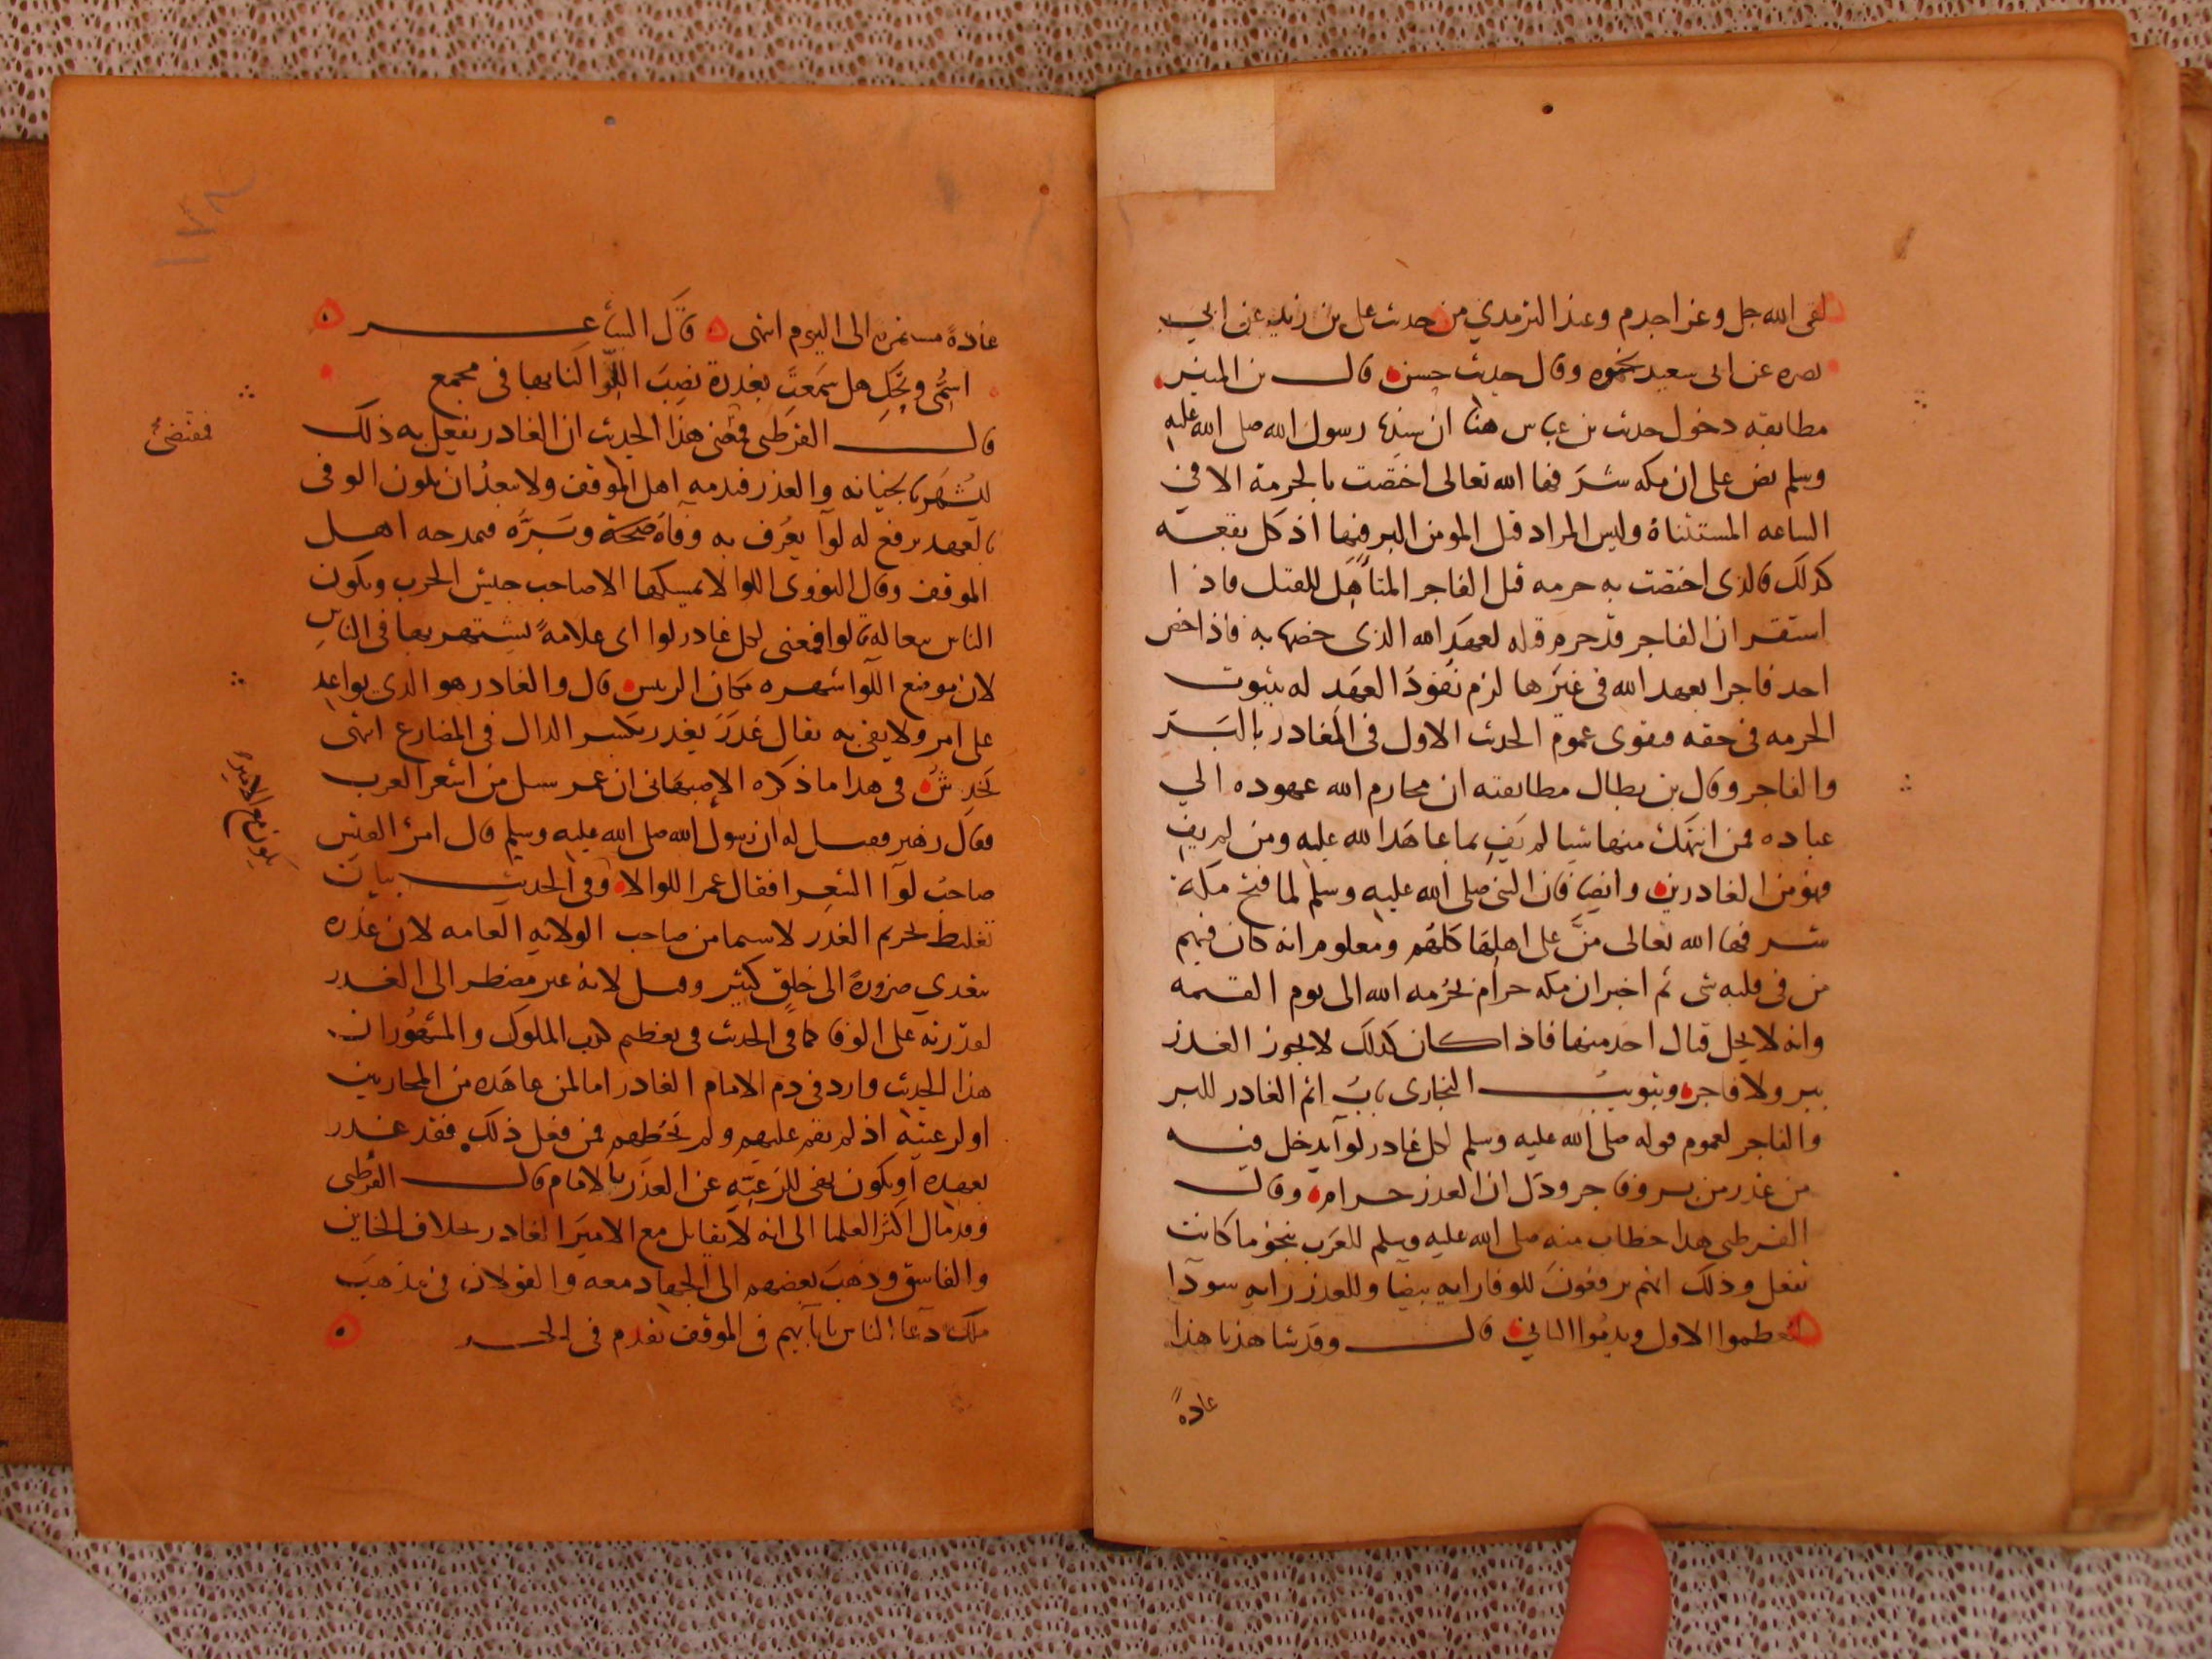 لقى الله جل وعز اجدم وعند الترمدي من حدث على بن زيد عن ابى
نصره عن ابى سعيد نحوه وقال حديث حسن قال بن المنير
مطابقه دخول حدىث بن عباس هنا ان سيدنا رسول الله صلى الله عليه
وسلم نص على ان مكه شرفها الله تعالى اختصت بالحرمة الا في
الساعه المستثناة وليس المراد قتل المومن البر فيها اذ كل بقعه
كذلك فالذى اختصت به حرمه قتل الفاجر المتأهل للقتل فاذا
استقر ان الفاجر قد حرم قتله لعهد الله الذى خصها به فاذا خص
احد فاجرا بعهد الله فى غيرها لزم نفوذ العهد له بثبوت
الحرمه فى حقه فيقوى عموم الحدىث الاول فى الغادر بالبر
والفاجر وقال بن بطال مطابقته ان محارم الله عهوده الي
عباده فمن انتهك منها شيا لم يف بما عاهد الله عليه ومن لم يف
فهو من الغادرين وايضا فان النبى صلى الله عليه وسلم لما فتح مكة
شرفها الله تعالى منّ على اهلها كلهم ومعلوم انه كان فيهم
من فى قلبه شى ثم اخبر ان مكه حرام بحرمه الله الى يوم القيمه
وانه لا يحل قتال احد منها فاذا كان كذلك لا يجوز الغدر
ببر ولا فاجر وتبويب البخارى باب اثم الغادر للبر
والفاجر لعموم قوله صلى الله عليه وسلم لكل غادر لوآ يدخل فيه
من غدر من بر وفاجر ودل ان الغدر حرام وقال
القرطبى هدا خطاب منه صلى الله عليه وسلم للعرب بنحو ما كانت
تفعل وذلك انهم يرفعون للوفا راىه بيضا وللغدر راىه سودآ
ليعظموا الاول ويذموا الثاني قال وقد شاهدنا هذا
عادهً
عادةً مستمرة الى اليوم انتهى قال الشاعر
اسمى ويحك هل سمعت بغدرة نصب اللوآ لنا بها فى مجمع
قال القرطبى فمقتضى هذا الحديث ان الغادر يفعل به ذلك
ليُشهر بالخيانه والغدر فيذمه اهل الموقف ولا يبعد ان يكون الوفى
بالعهد يرفع له لوآ يعرف به وفآه صحة وسره فيمدحه اهل
الموقف وقال النووى اللوا لا يمسكها الا صاحب جيش الحرب وىكون
الناس ىبعا له قالوا فمعنى لكل غادر لوا اى علامةً يشتهر بها فى الناس
لان موضع اللوآ شهره مكان الريس قال والغادر هو الذى يواعد
على امر ولا يفى به ىقال غدر يغدر بكسر الدال فى المضارع انتهى
يخدش فى هدا ما ذكره الاصبهانى ان عمر سىل من اشعر العرب
فقال زهير فقيل له ان رسول الله صلى الله عليه وسلم قال امرئ القيس
صاحب لوآ الشعرا فقال عمر اللوا لا وفى الحديث بيان
تغليظ تحريم الغدر لا سيما من صاحب الولايه العامه لان غدره
يتعدي ضرورةً الى خلق كثير وقىل لانه غىر مضطر الى الغدر
لقدرته على الوفا كما فى الحدىث فى تعظيم كذب الملوك والمشهور ان
هذا الحدىث وارد فى ذم الامام الغادر اما لمن عاهده من المحاربين
او لرعيته اذ لم يقم عليهم ولم يحطهم فمن فعل ذلك فقد غدر
بعهده او يكون نهى للرعيّه عن الغدر بالامام قال القرطبى
وقد مال اكثر العلما الى انه لا يقاتل مع الامير الغادر بخلاف الخاين
والفاسق وذهب بعضهم الى الجهاد معه والقولان فى مذهب
ملك دعآ الناس بابآيهم فى الموقف تقدم فى
فمقتضىٰ
يكون مع الامير